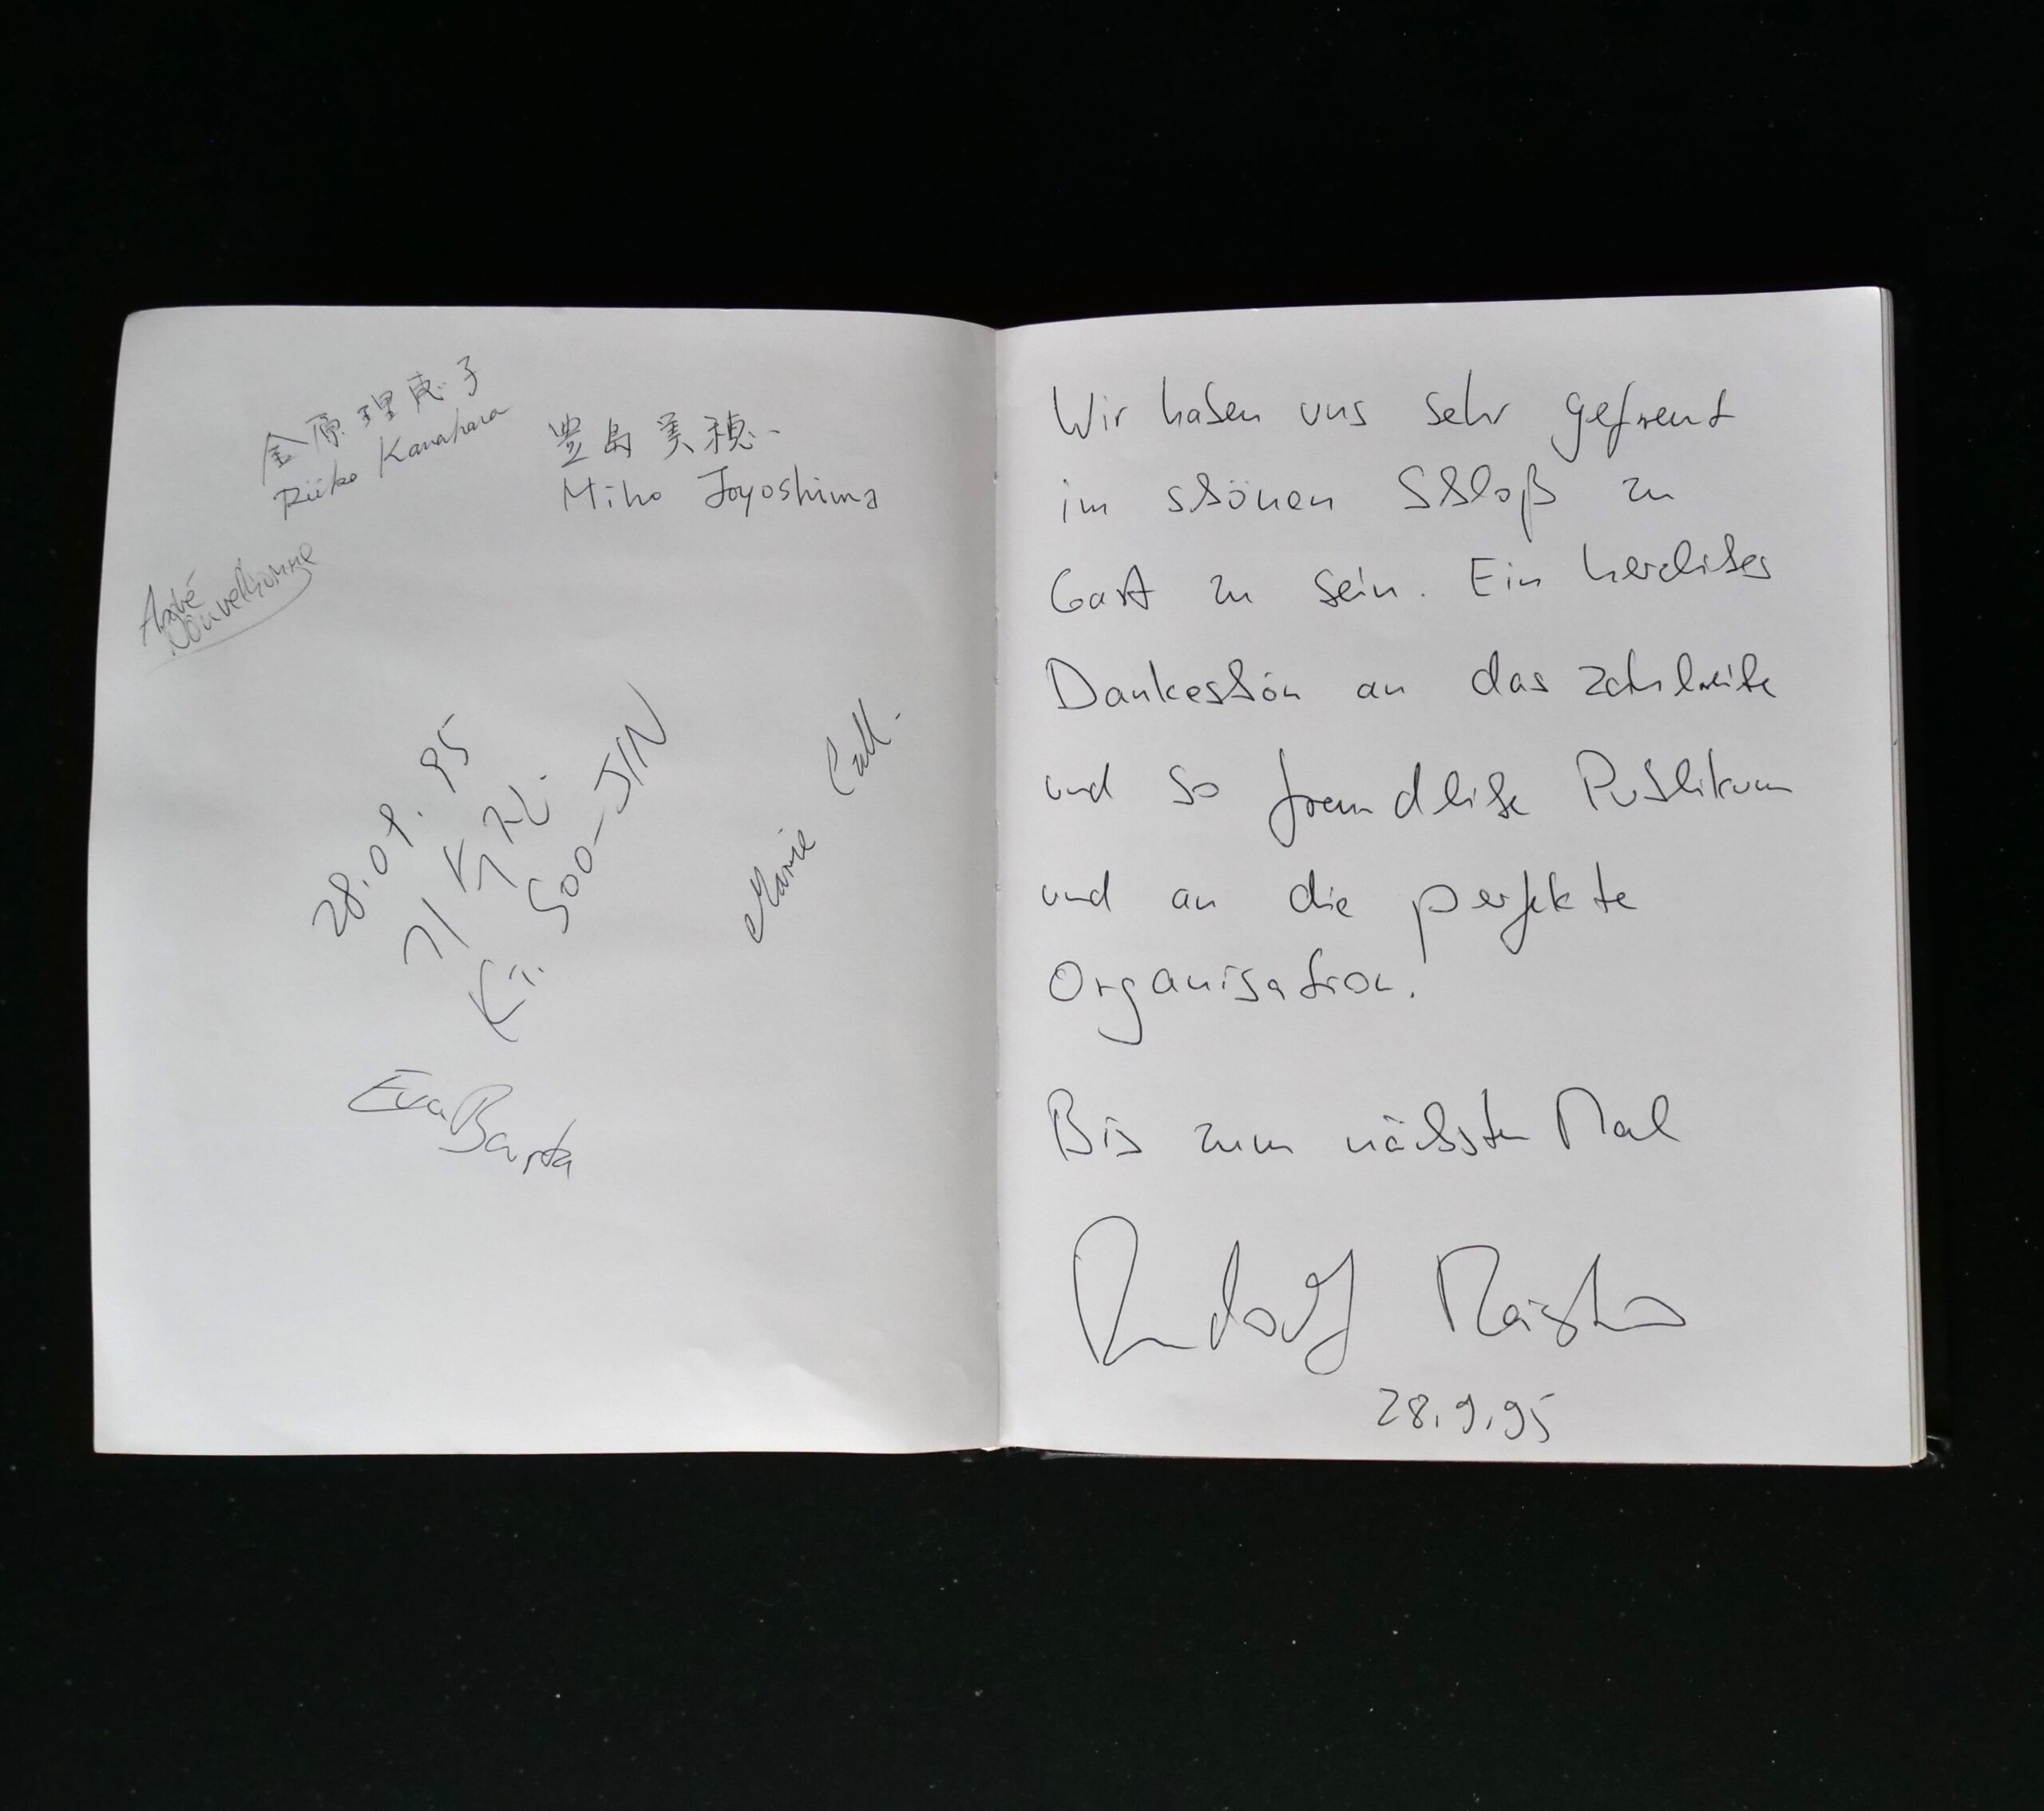 金原理恵子
Rieko Kanahara
豊島美穂
Miho Toyoshima
28.09.95
기수진.
Ki. SOO-JIN
Marie
Eva Barta
Wir haben uns sehr gefreut
im schönen Schloß zu
Gast zu sein. Ein herzliches
Dankeschön an das zahlreiche
und so freundliche Publikum
und an die perfekte
Organisation!
Bis zum nächsten Mal
Rudolf
28.9.95